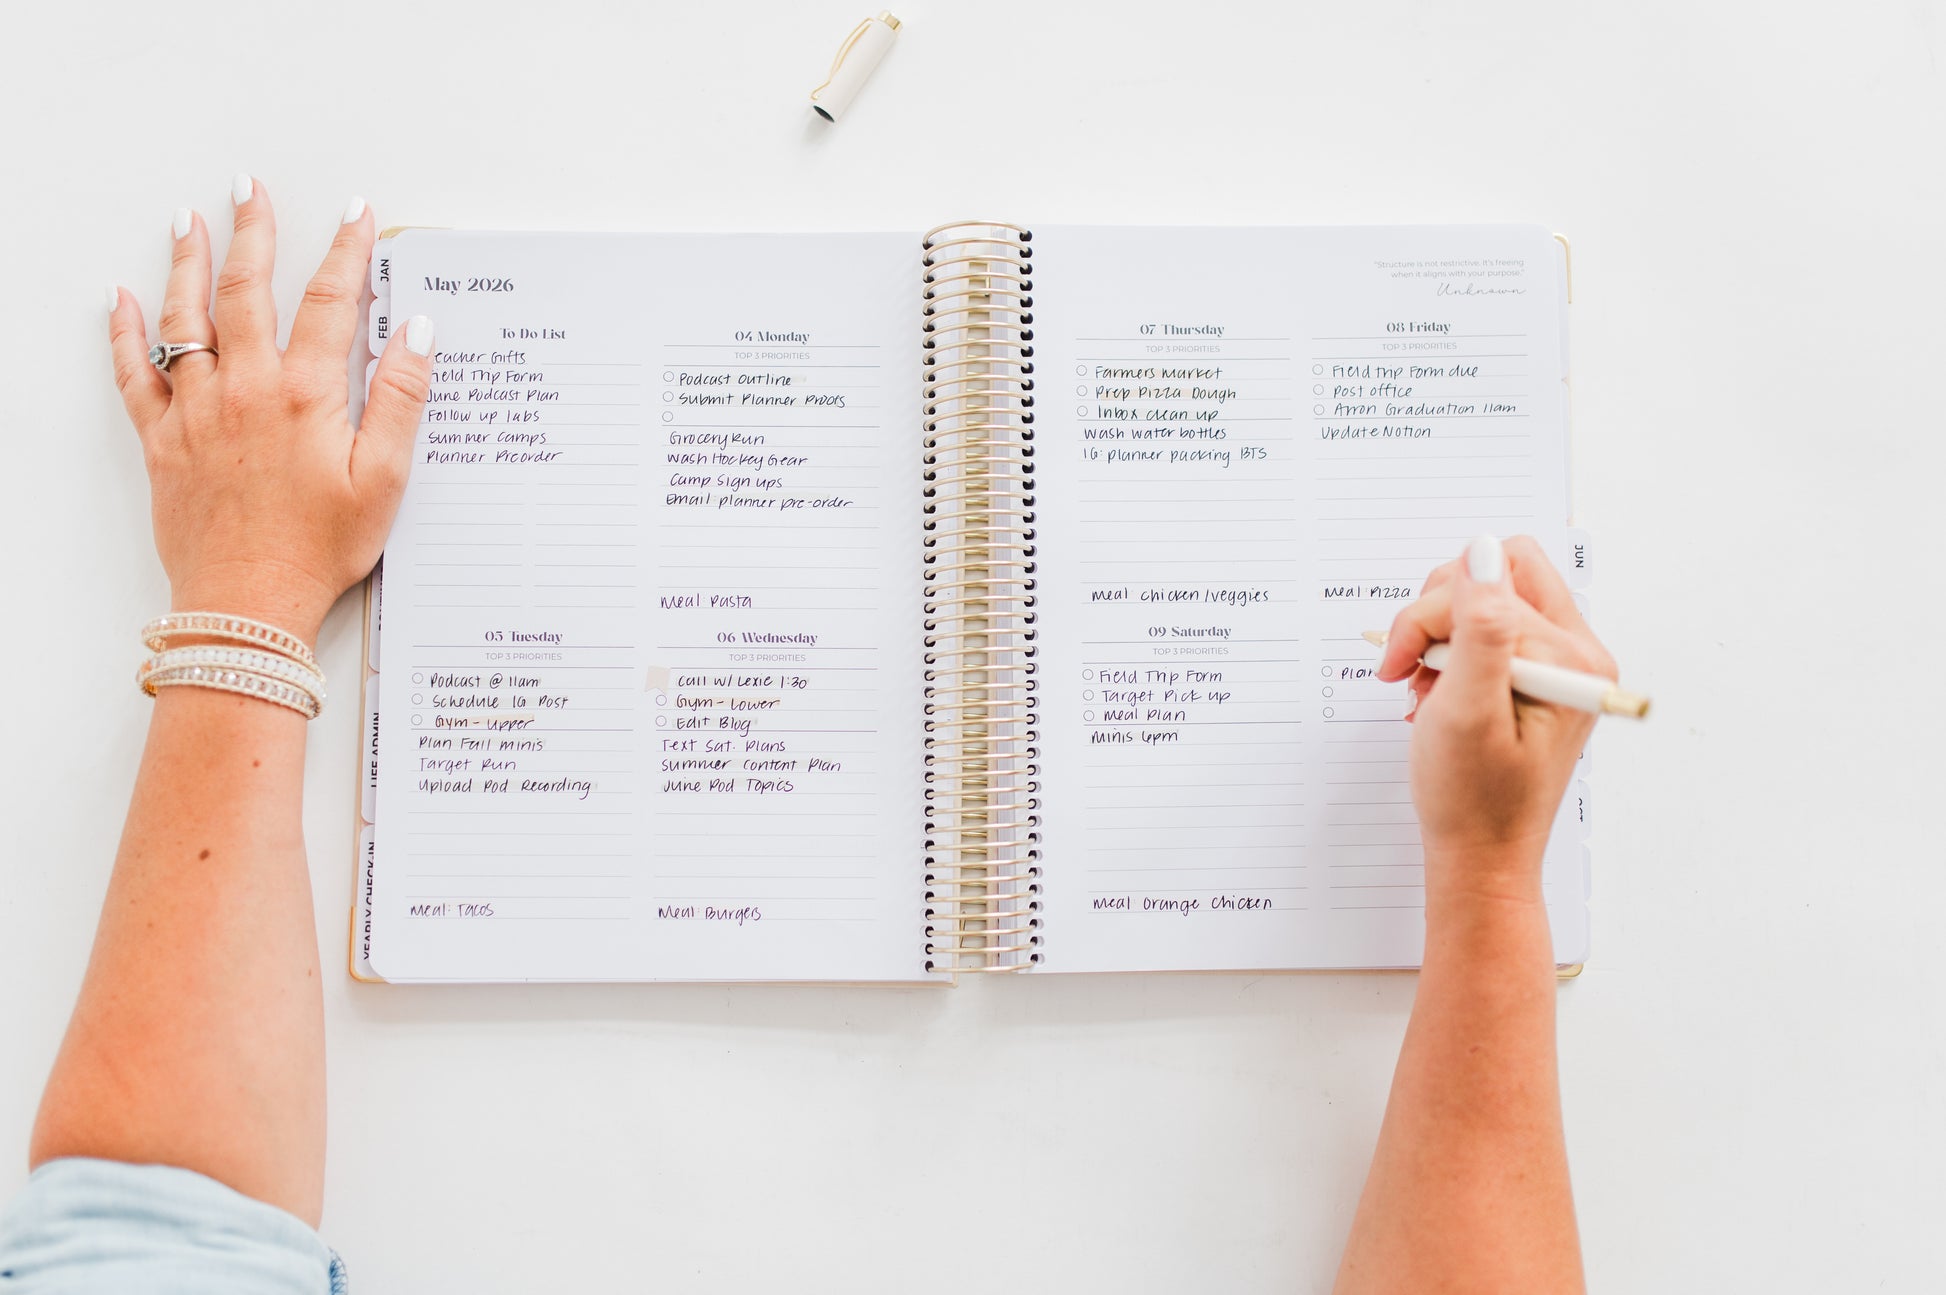 JAN
FEB
LIFE ADMIN
YEARLY CHECK-IN
May 2026
To Do List
eacher Gifts
ield Trip Form
June Podcast Plan
Follow up labs
Summer Camps
Planner Preorder
04 Monday
TOP 3 PRIORITIES
Podcast Outline
Submit Planner Proofs
Grocery Run
Wash Hockey Gear
Camp Sign ups
Email: planner pre-order
Meal: Pasta
05 Tuesday
TOP 3 PRIORITIES
Podcast @ 11am
Schedule IG Post
Gym - Upper
Plan Fall Minis
Target Run
Upload Pod Recording
Meal: Tacos
06 Wednesday
TOP 3 PRIORITIES
Call w/ Lexie 1:30
Gym - Lower
Edit Blog
Text Sat. Plans
Summer Content Plan
June Pod Topics
Meal: Burgers
"Structure is not restrictive. It's freeing
when it aligns with your purpose."
Unknown
07 Thursday
TOP 3 PRIORITIES
Farmers Market
Prep Pizza Dough
Inbox clean up
Wash water bottles
IG: planner packing BTS
Meal: Chicken/veggies
08 Friday
TOP 3 PRIORITIES
Field trip Form due
Post office
Arron Graduation 11am
Update Notion
Meal: Pizza
09 Saturday
TOP 3 PRIORITIES
Field Trip Form
Target Pick up
Meal Plan
Minis 6pm
Meal: Orange Chicken
JUN
OCT